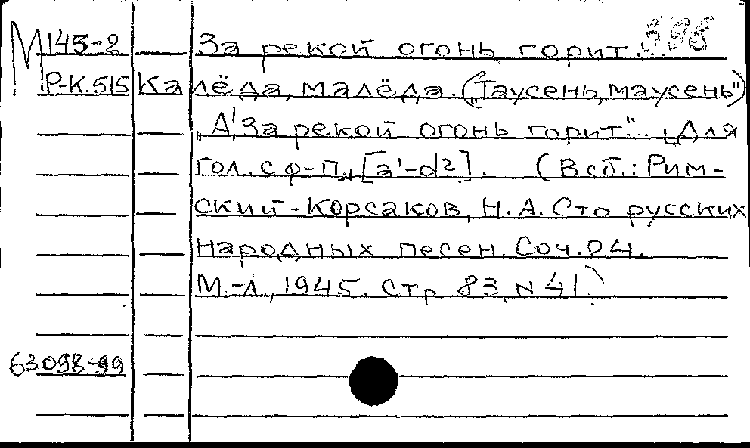 М 145-2 За рекой огонь горит... 398
Р-К.515 Каледа, маледа. („Таусень, маусень")
„А! За рекой огонь горит". „Для
гол. с ф-п. [a¹-d²]. (В сб.: Рим-
ский-Корсаков, Н.А. Сто русских
народных песен. Соч. 24.
М.-Л., 1945. Стр. 83, N 41)
63098-99